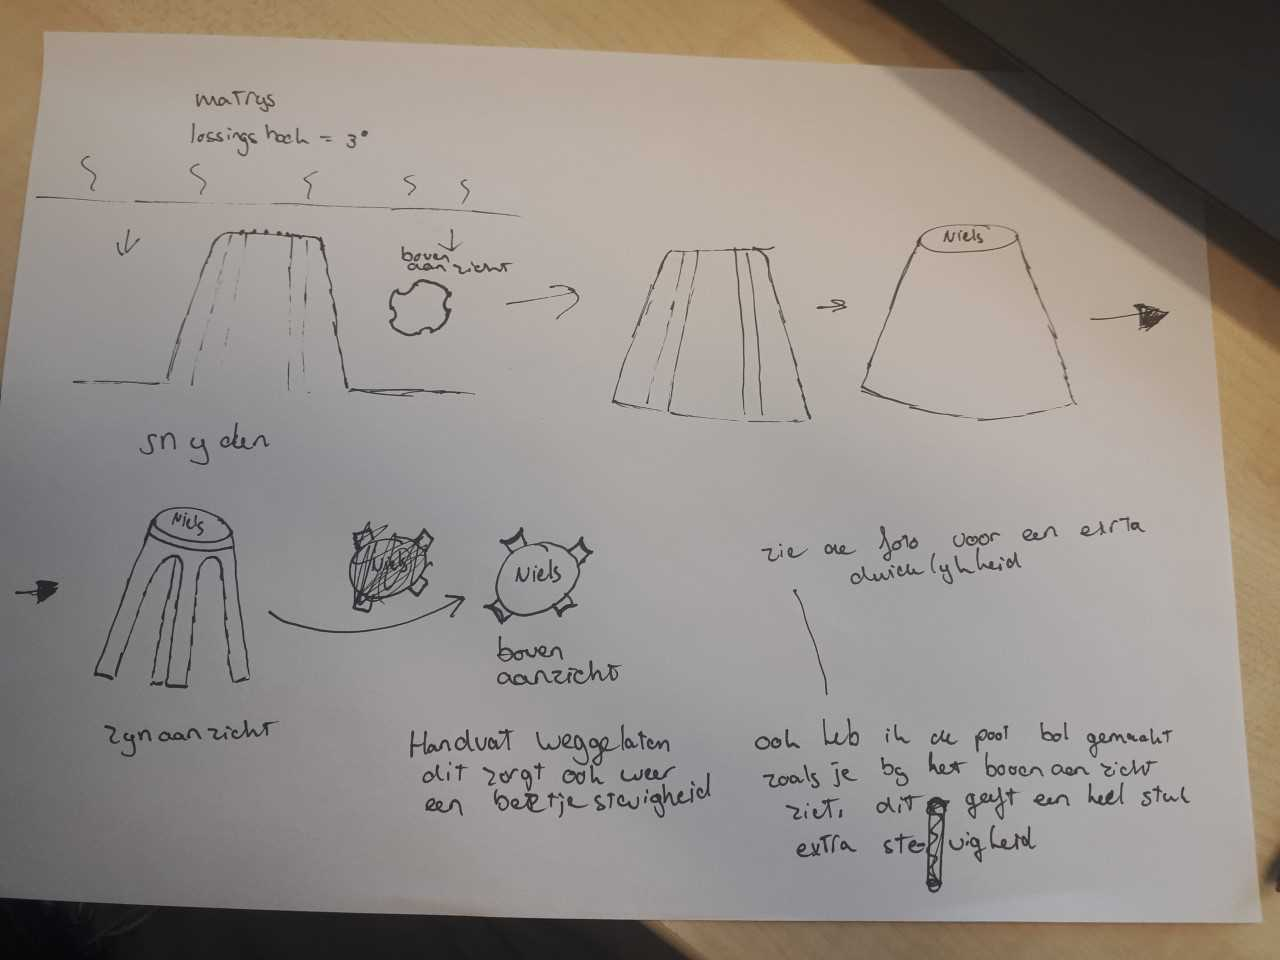 matrys
lossingshoek = 3°
boven
aanzicht
Niels
snyden
Niels
Niels
Niels
zynaanzicht
boven
aanzicht
zie de foto voor een exrta
duidelykheid
Handvat weggelaten
dit zorgt ook weer
een beetje stevigheid
ook heb ik de poot bol gemaakt
zoals je by het bovenaanzicht
ziet, dit geeft een heel stuk
extra stevigheid